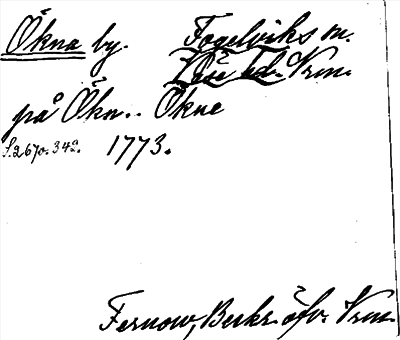 Ökna by. Fogelviks m.
Väse hd. Vrm.
på Ökn.. Ökne
S. 267 o. 342. 1773.
Fernow, Beskr. öfv. Vrm.